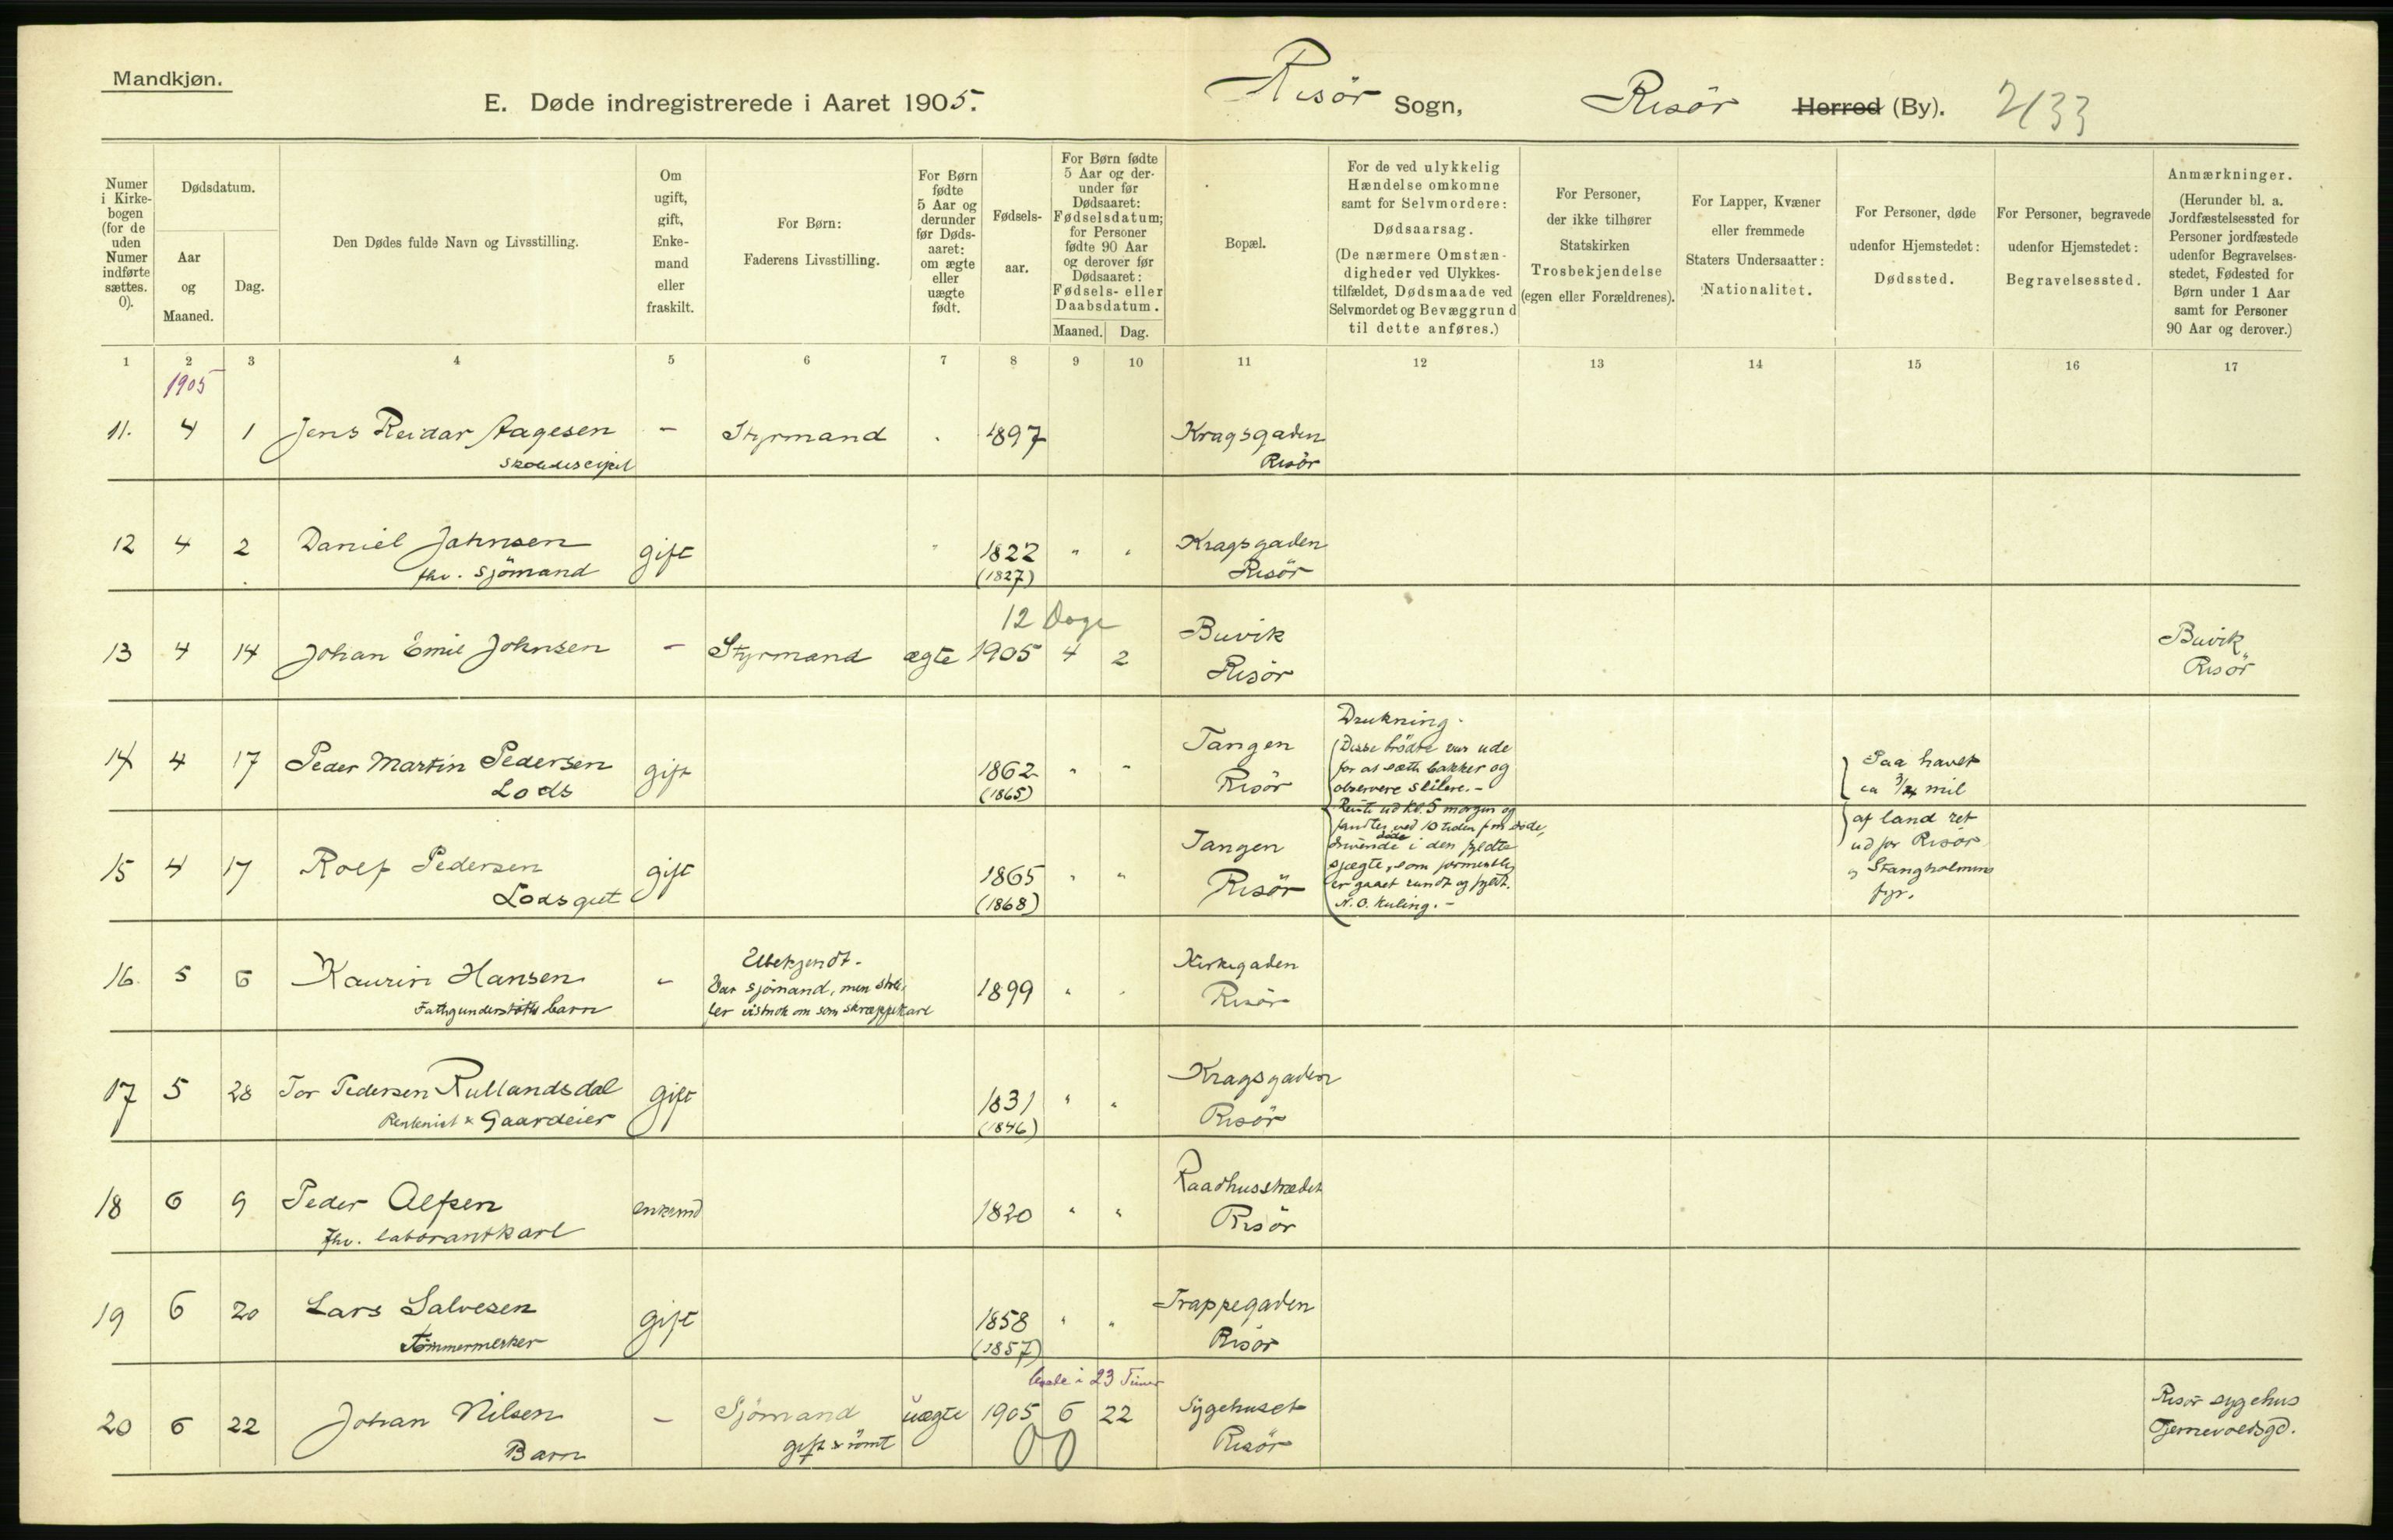 Mandkjøn.
E. Døde indregistrerede i Aaret 1905.
Risör Sogn, Risör Herred (By). 2133
Numer i Kirkebogen (for de uden Numer indførte sættes. 0).
Dødsdatum.
Aar og Maaned.
Dag.
Den Dødes fulde Navn og Livsstilling.
Om ugift, gift, Enkemand eller fraskilt.
For Børn: Faderens Livsstilling.
For Børn fødte 5 Aar og derunder før Dødsaaret: om ægte eller uægte født.
Fødselsaar.
For Børn fødte 5 Aar og derunder før Dødsaaret: Fødselsdatum; for Personer fødte 90 Aar og derover før Dødsaaret: Fødsels- eller Daabsdatum.
Maaned. Dag.
Bopæl.
For de ved ulykkelig Hændelse omkomne samt for Selvmordere: Dødsaarsag. (De nærmere Omstændigheder ved Ulykkestilfældet, Dødsmaade ved Selvmordet og Bevæggrund til dette anføres.)
For Personer, der ikke tilhører Statskirken Trosbekjendelse (egen eller Forældrenes).
For Lapper, Kvæner eller fremmede Staters Undersaatter: Nationalitet.
For Personer, døde udenfor Hjemstedet: Dødssted.
For Personer, begravede udenfor Hjemstedet: Begravelsessted.
Anmærkninger. (Herunder bl. a. Jordfæstelsessted for Personer jordfæstede udenfor Begravelsesstedet, Fødested for Børn under 1 Aar samt for Personer 90 Aar og derover.)
1 2 3 4 5 6 7 8 9 10 11 12 13 14 15 16 17
1905
11. 4 1 Jens Reidar Aagesen - Styrmand 1897 Kragsgaden
Skolediscipel Risör
12 4 2 Daniel Johnsen gift 1822 " " Kragsgaden
fhv. Sjömand (1827) Risör
12 Dage
13 4 14 Johan Emil Johnsen - Styrmand ægte 1905 4 2 Buvik Risör Buvik, Risör
14 4 17 Peder Martin Pedersen gift 1862 " " Tangen
Lods (1865) Risör
Drukning.
Disse brödre var ude
for at sætte bakker og
observere seilere. -
Reiste ud kl. 5 morgen og
fandtes ved 10 tiden fm döde,
drivende i den fyldte
sjægte, som formentlig
er gaaet rundt og fyldt.
N.O. Kuling. -
Paa havet
ca 3/4 mil
af land ret
ud for Risör
og Stangholmens
fyr.
15 4 17 Rolf Pedersen gift 1865 " " Tangen
Lodsgut (1868) Risör
16 5 6 Kaurin Hansen - Ubekjendt. 1899 " " Kirkegaden
Fattigunderstöttet barn Var sjömand, men strei-
fer vistnok om som skræppekarl Risör
17 5 28 Tor Pedersen Rullandsdal gift 1831 " " Kragsgaden
Rentenist & Gaardeier (1846) Risör
18 6 9 Peder Olsen enkemd 1820 " " Raadhusstrædet
fhv. laborantkarl Risör
19 6 20 Lars Salvesen gift 1858 " " Trappegaden
Tömmermerker (1857) Risör
levede i 23 Timer
20 6 22 Johan Nilsen - Sjömand uægte 1905 6 22 Sygehuset Risör sygehus
Barn gift & römt Risör Tjernevoldsgd.